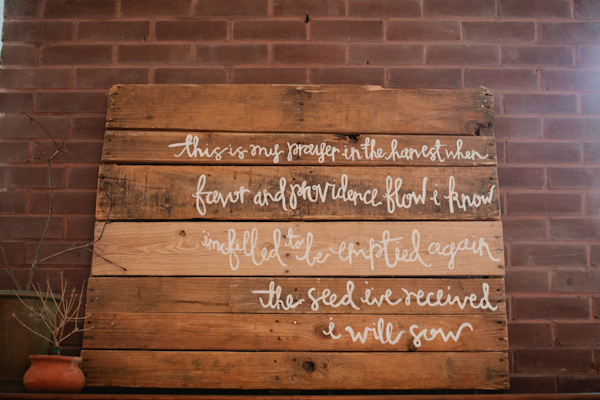 this is my prayer in the harvest when
favor and providence flow i know
i'm filled to be emptied again
the seed i've received
i will sow